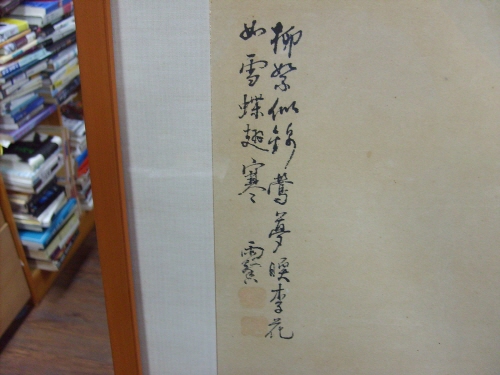 柳絮似錦鶯夢暖李花
如雪蝶翅寒